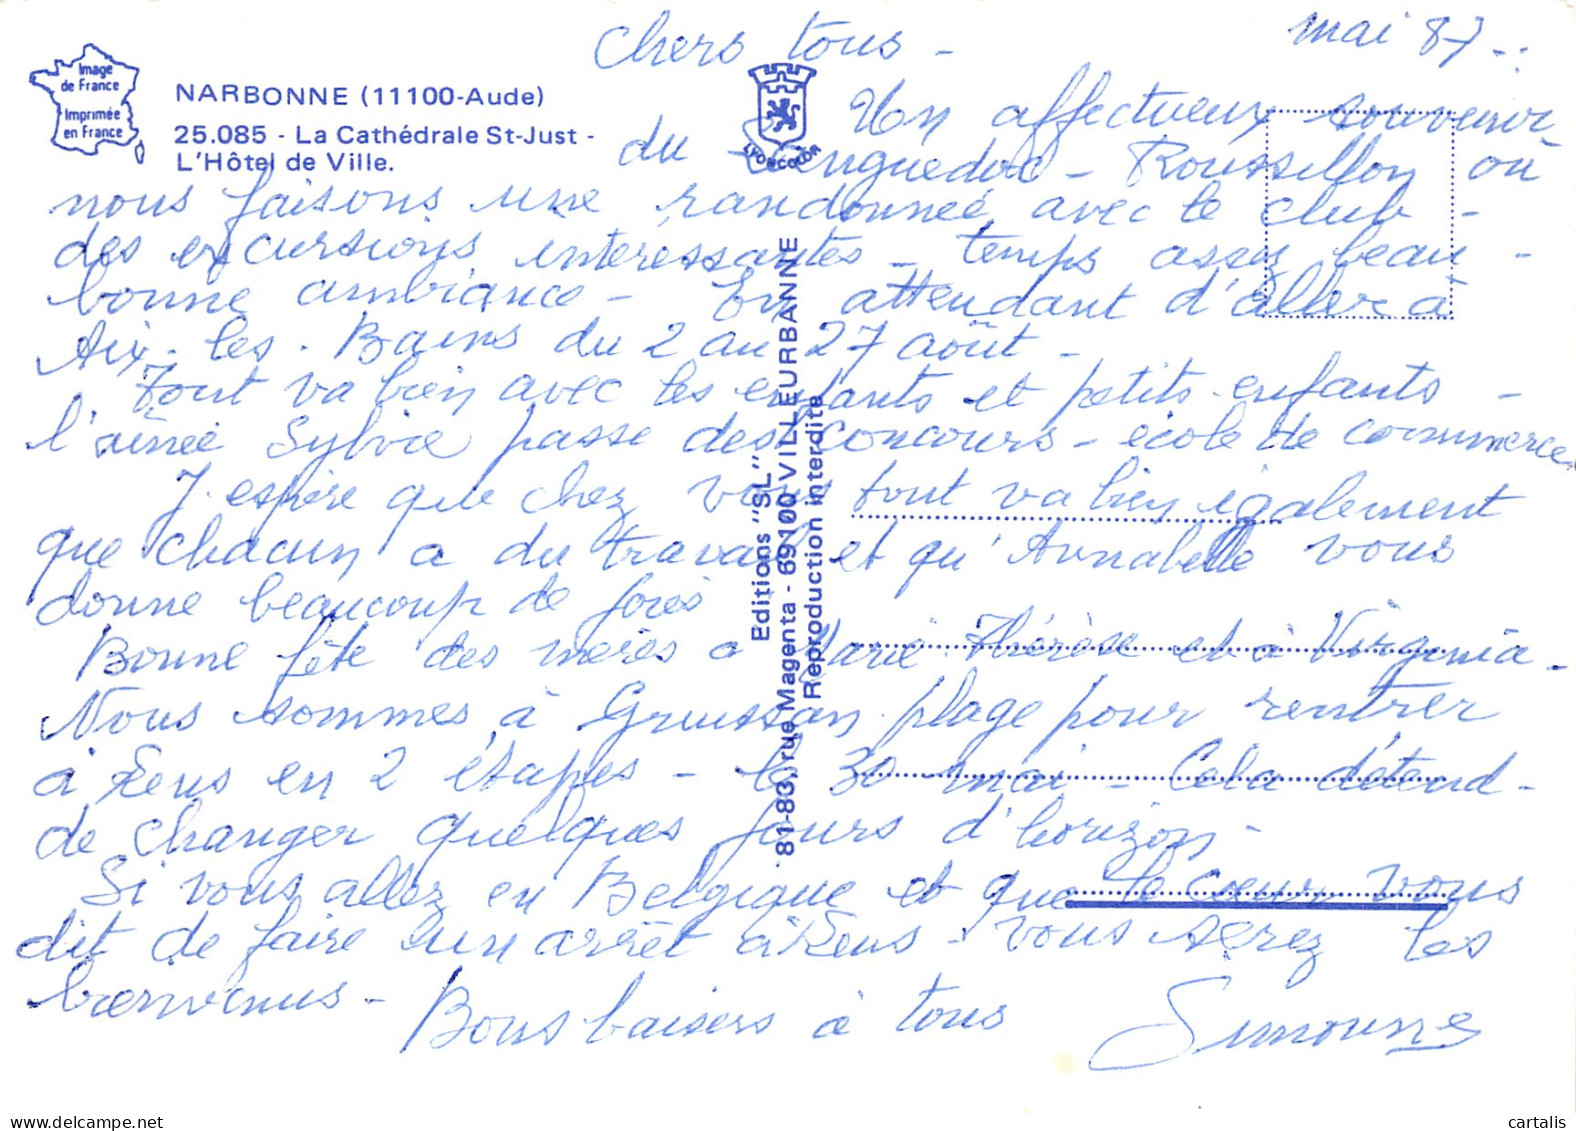 mai 87
Chers tous -
Image
de France
Imprimée
en France
NARBONNE (11100-Aude)
25.085 - La Cathédrale St-Just -
L'Hôtel de Ville.
LYONCOLOR
Un affectueux souvenir
du Languedoc - Roussillon où
nous faisons une randonnée avec le club -
des excursions intéressantes - temps assez beau -
bonne ambiance - En attendant d'aller à
Aix-les-Bains du 2 au 27 août -
Tout va bien avec les enfants et petits-enfants -
l'ainée Sylvie passe des concours - école de commerce.
J'espère que chez vous tout va bien également
que chacun a du travail et qu'Annabelle vous
donne beaucoup de joies
Bonne fête des mères à Marie Thérèse et à Virginia -
Nous sommes à Gruissan plage pour rentrer
à Lens en 2 étapes - le 30 mai - Cela détend -
de changer quelques jours d'horizon -
Si vous allez en Belgique et que le cœur vous
dit de faire un arrêt à Lens - vous serez les
bienvenus -
Bons baisers à tous
Simonne
Editions "SL"
81-83, rue Magenta - 69100 VILLEURBANNE
Reproduction interdite
cartalis